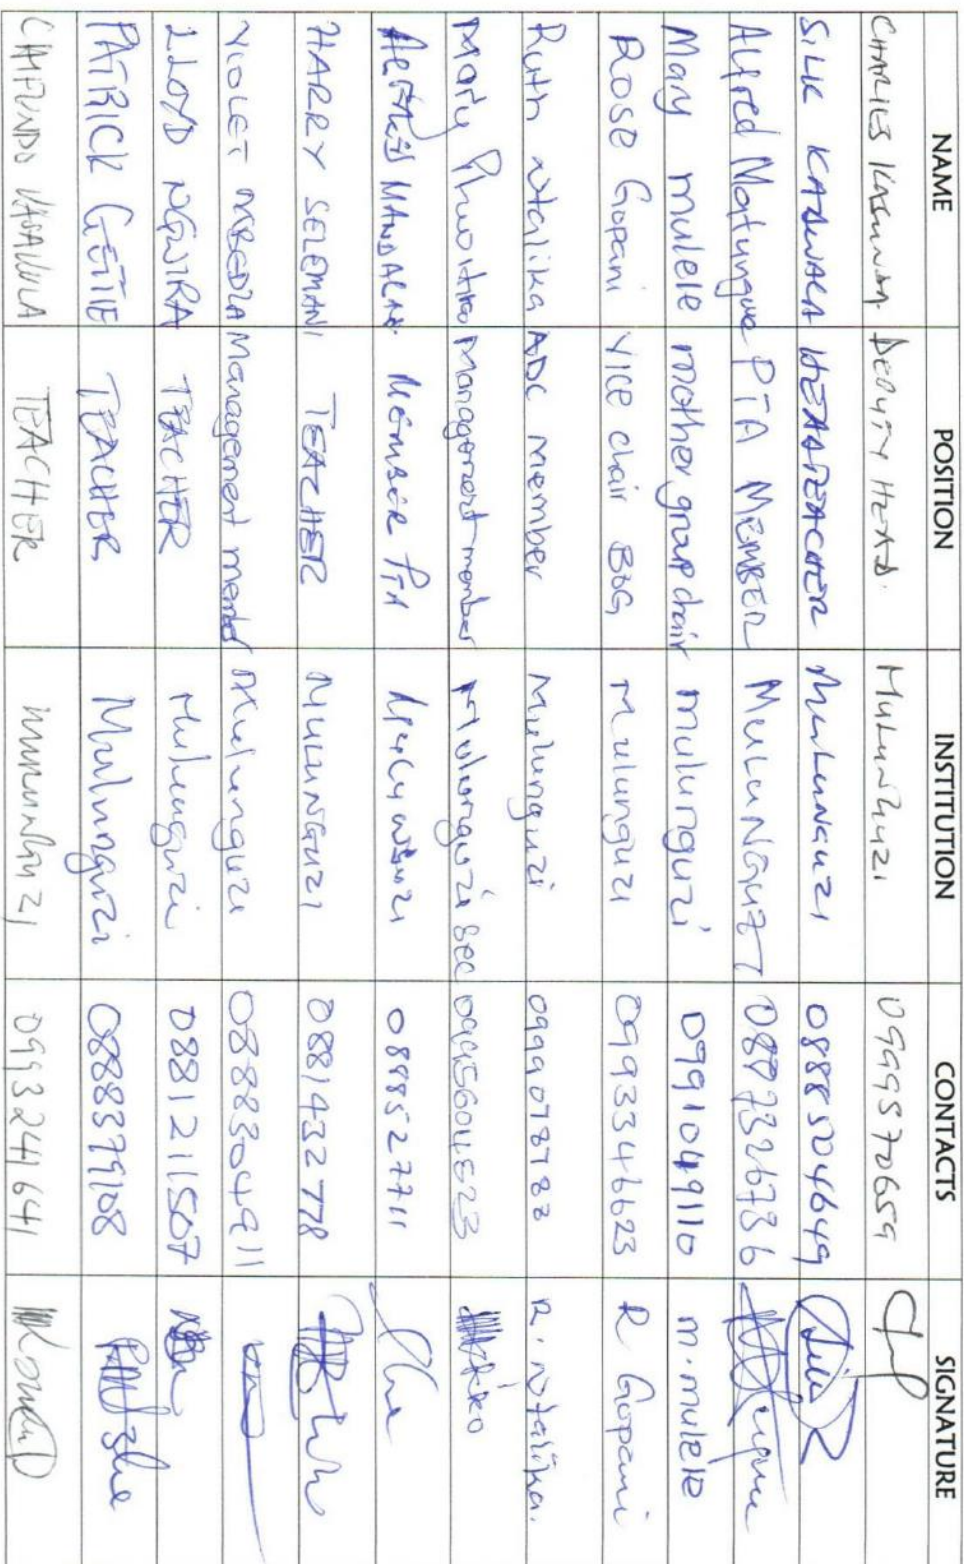 NAME POSITION INSTITUTION CONTACTS SIGNATURE
CHARLES DEPUTY HEAD. Mulunguzi 0999570659
SILK KADWALA HEADTEACHER Mulunguzi 0888504649
Alfred Matungwe PTA MEMBER MULUNGUZI
Mary mulele mother group chair mulunguzi 0991049110 m.mulele
ROSE Gopani VICE chair BOG Mulunguzi 0993346623 R Gopani
Ruth Ntalika ADC member Mulunguzi 0999078788 R. Ntalika.
Mary Management member Mulunguzi Sec
MEMBER PTA 0888527711
HARRY SELEMANI TEACHER MULUNGUZI 0881432778
VIOLET MBEDZA Management member Mulunguzi 0888304911
LLOYD NGWIRA TEACHER Mulunguzi 0881211507
PATRICK GETIE TEACHER Mulunguzi 0888379108
CHIFUNDO TEACHER 0993241641